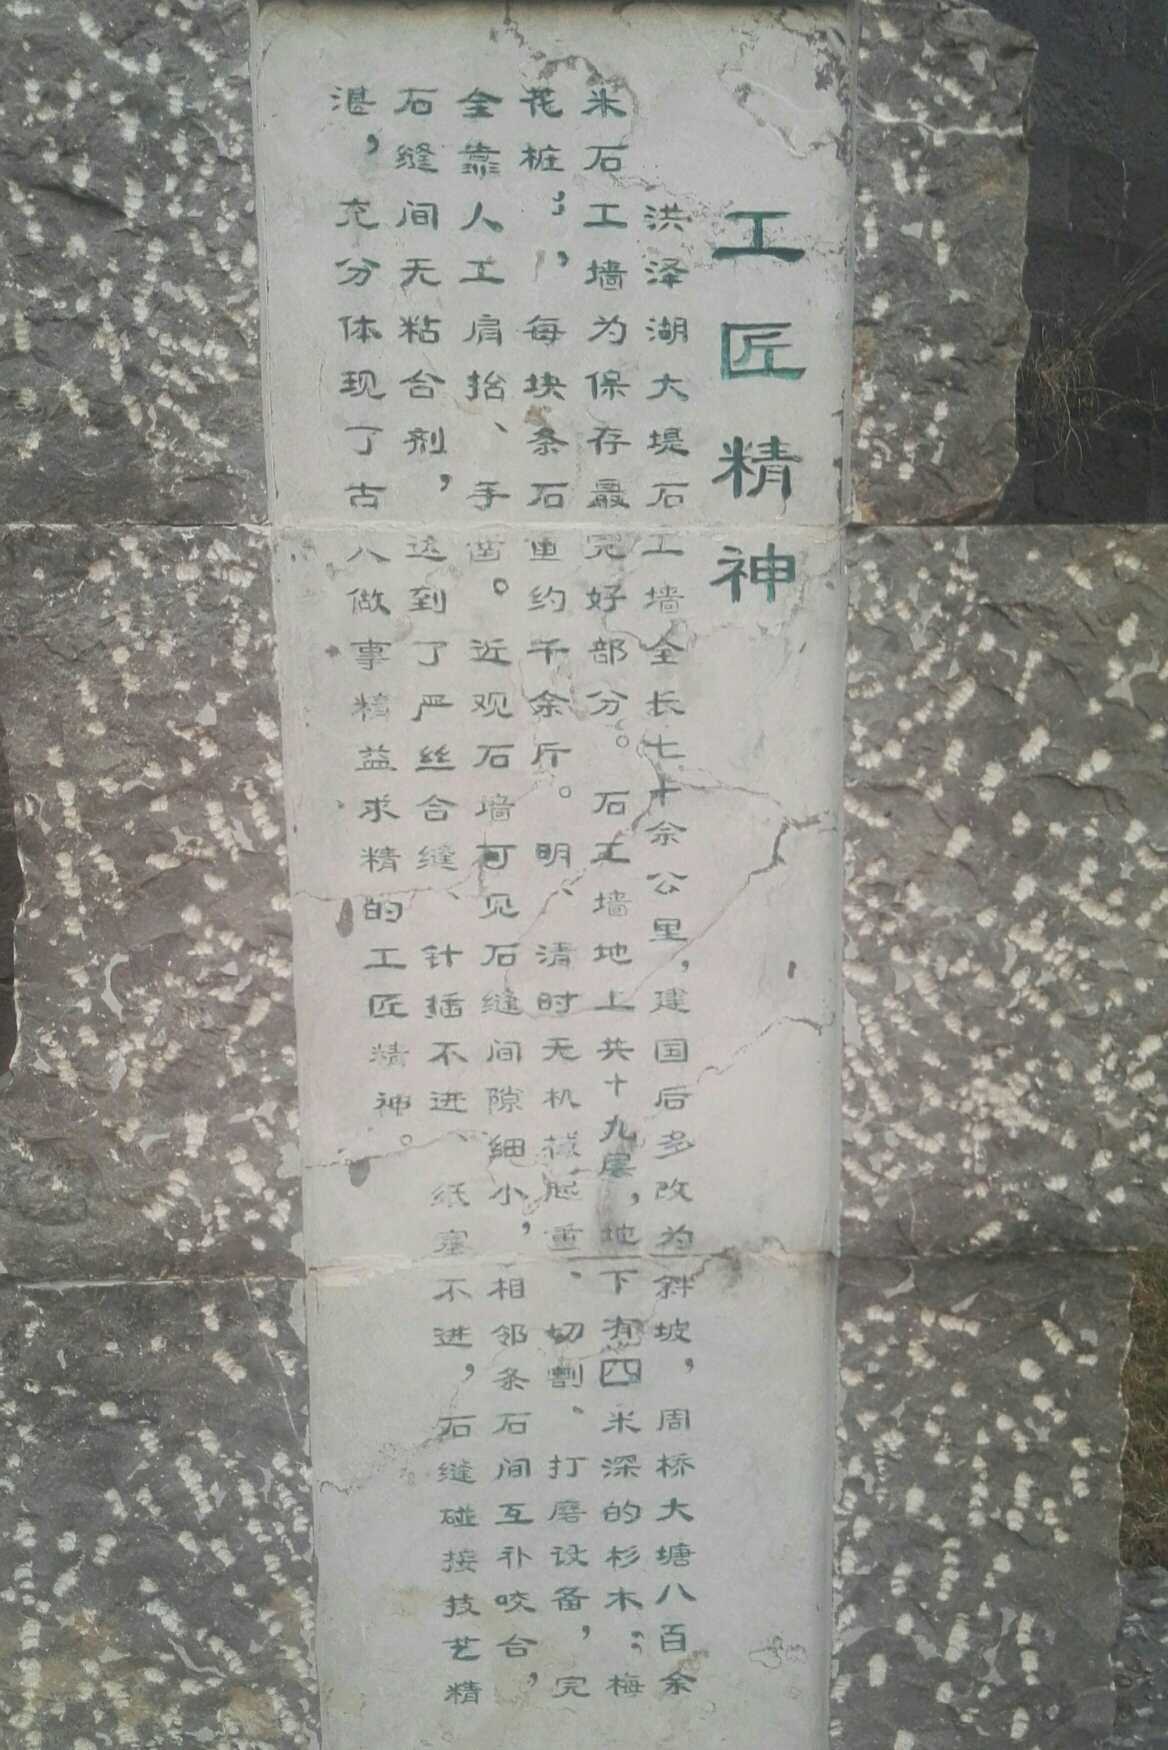 工匠精神
洪泽湖大堤石工墙全长七十余公里，建国后多改为斜坡，周桥大塘八百余
米石工墙为保存最完好部分。石工墙地上共十九层，地下有四米深的杉木“梅
花桩”，每块条石重约千余斤。明、清时无机械起重、切割、打磨设备，完
全靠人工肩抬、手凿。近观石墙可见石缝间隙细小，相邻条石间互补咬合，
石缝间无粘合剂，达到了严丝合缝、针插不进、纸塞不进，石缝碰接技艺精
湛，充分体现了古人做事精益求精的工匠精神。